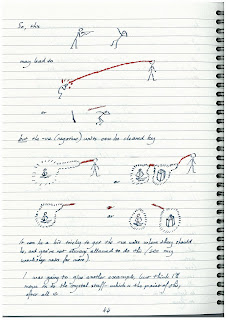 So, this
may lead to
or
but the -ve (negative) votes can be cleared by
or
or
It can be a bit tricky to get the -ve votes where they should
be, and you're not always allowed to do this (see my
notes for more).
I was going to give another example, but think I'll
move on to the crystal stuff which is the point of this,
after all